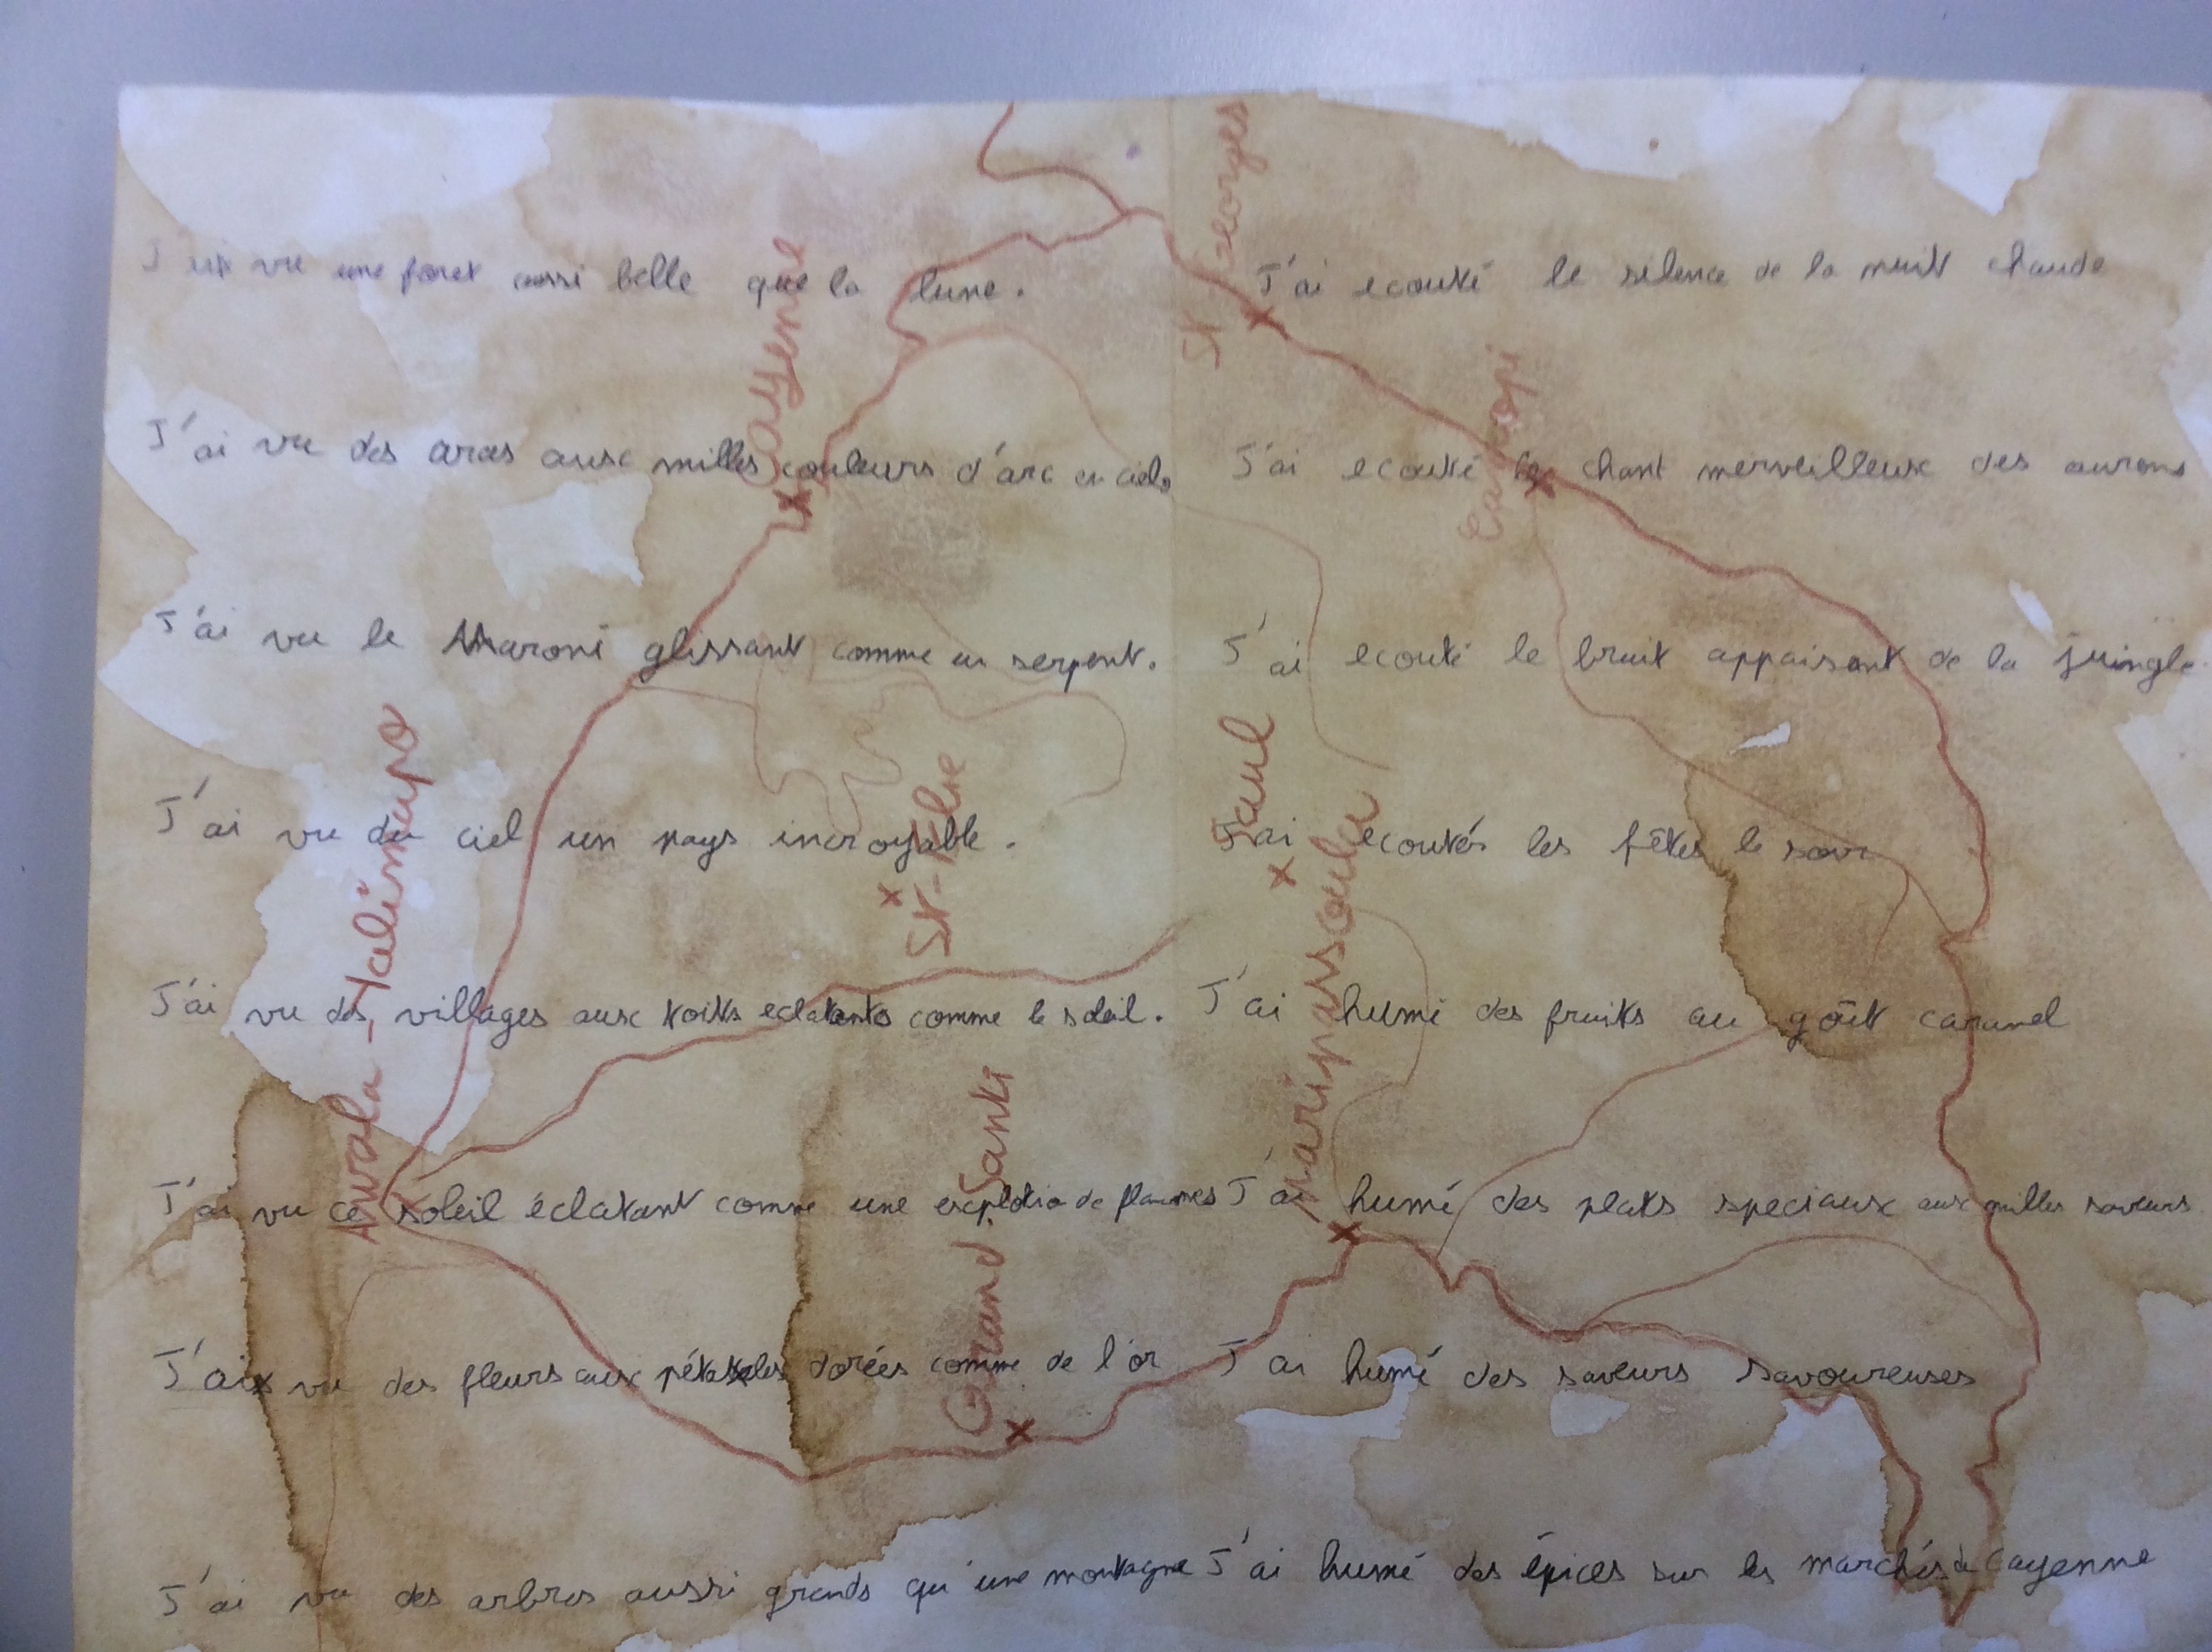 J'ai vu une foret aussi belle que la lune.
J'ai vu des aras aux milles couleurs d'arc en ciel.
J'ai vu le Maroni glissant comme un serpent.
J'ai vu du ciel un pays incroyable.
J'ai vu des villages aux toits eclatants comme le soleil.
J'ai vu ce soleil éclatant comme une explotio de flammes
J'ai vu des fleurs aux pétales dorées comme de l'or
J'ai vu des arbres aussi grands qu'une montagne
J'ai ecouté le silence de la nuit chaude
J'ai ecouté le chant merveilleux des
J'ai ecouté le bruit appaisant de la jungle
J'ai ecoutés les fêtes le soir
J'ai humé des fruits au goût caramel
J'ai humé des plats speciaux aux milles saveurs
J'ai humé des saveurs savoureuses
J'ai humé des épices sur les marchés de Cayenne
Cayenne
St Georges
Camopi
Awala-Yalimapo
St-Elie
Saul
Maripasoula
Grand Santi